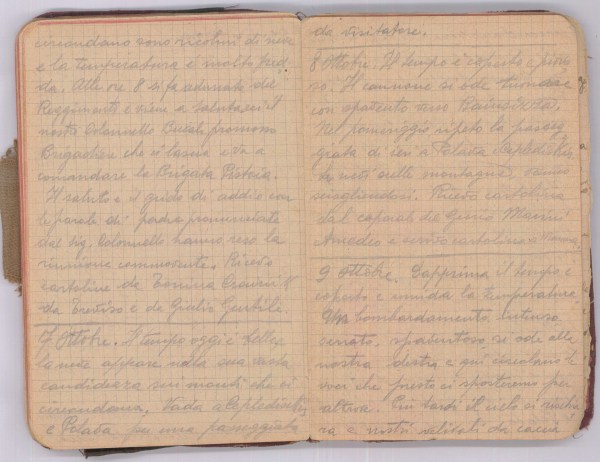 circondano sono ricolmi di neve
e la temperatura è molto fred-
da. Alle ore 8 si fa adunata del
Reggimento e viene a salutarci il
nostro Colonnello promosso
Brigadiere che ci lascia e va a
comandare la Brigata Pistoia.
Il saluto e il grido di addio con
le parole di padre pronunciate
dal Sig. Colonnello hanno reso la
riunione commovente. Ricevo
cartoline da Tonina
da Treviso e da Giulio
7 Ottobre. Il tempo oggi è bello,
la neve appare nella sua vasta
candidezza sui monti che ci
circondano. Vado a
e Polava per una passeggiata
da visitatore.
8 Ottobre. Il tempo è coperto e piovo-
so. Il cannone si ode tuonare
con spavento verso Bainsizza.
Nel pomeriggio ripeto la passeg-
giata di ieri a Polava
la neve sulle montagne vanno
sciogliendosi. Ricevo cartolina
dal caporal del Genio
Amedeo e scrivo cartolina a
9 Ottobre. Dapprima il tempo è
coperto e umida la temperatura.
Un bombardamento intenso
serrato, spaventoso si ode alla
nostra destra e qui circolano le
voci che presto ci sposteremo per
altrove. Più tardi il cielo si rischia-
ra e nostri velivoli da caccia